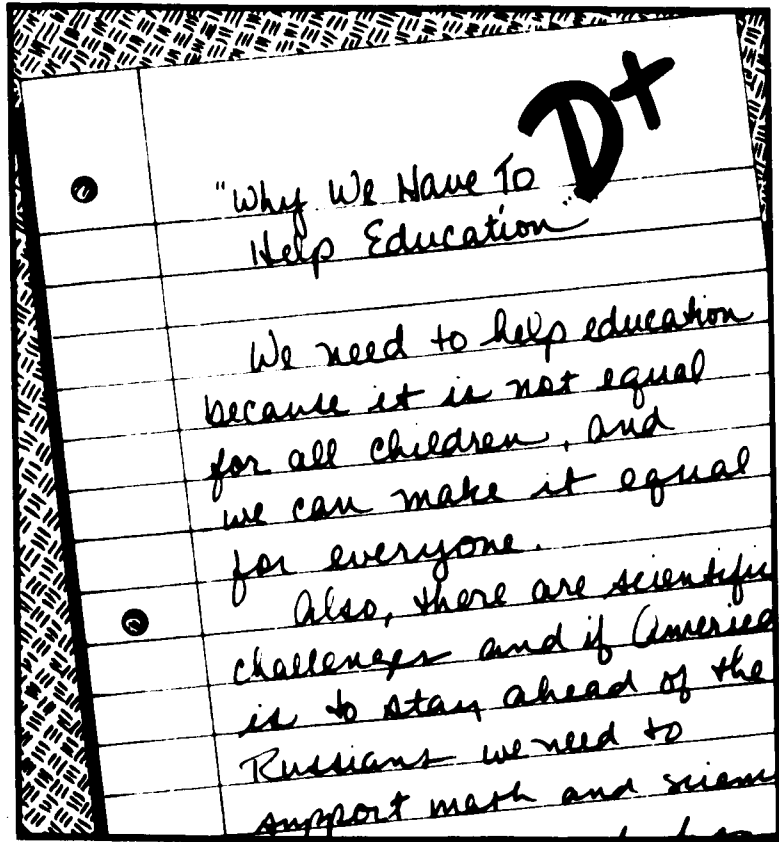 D+
"Why We Have To
Help Education"
We need to help education
because it is not equal
for all children, and
we can make it equal
for everyone.
Also, there are scientific
challenges and if America
is to stay ahead of the
Russians we need to
support math and